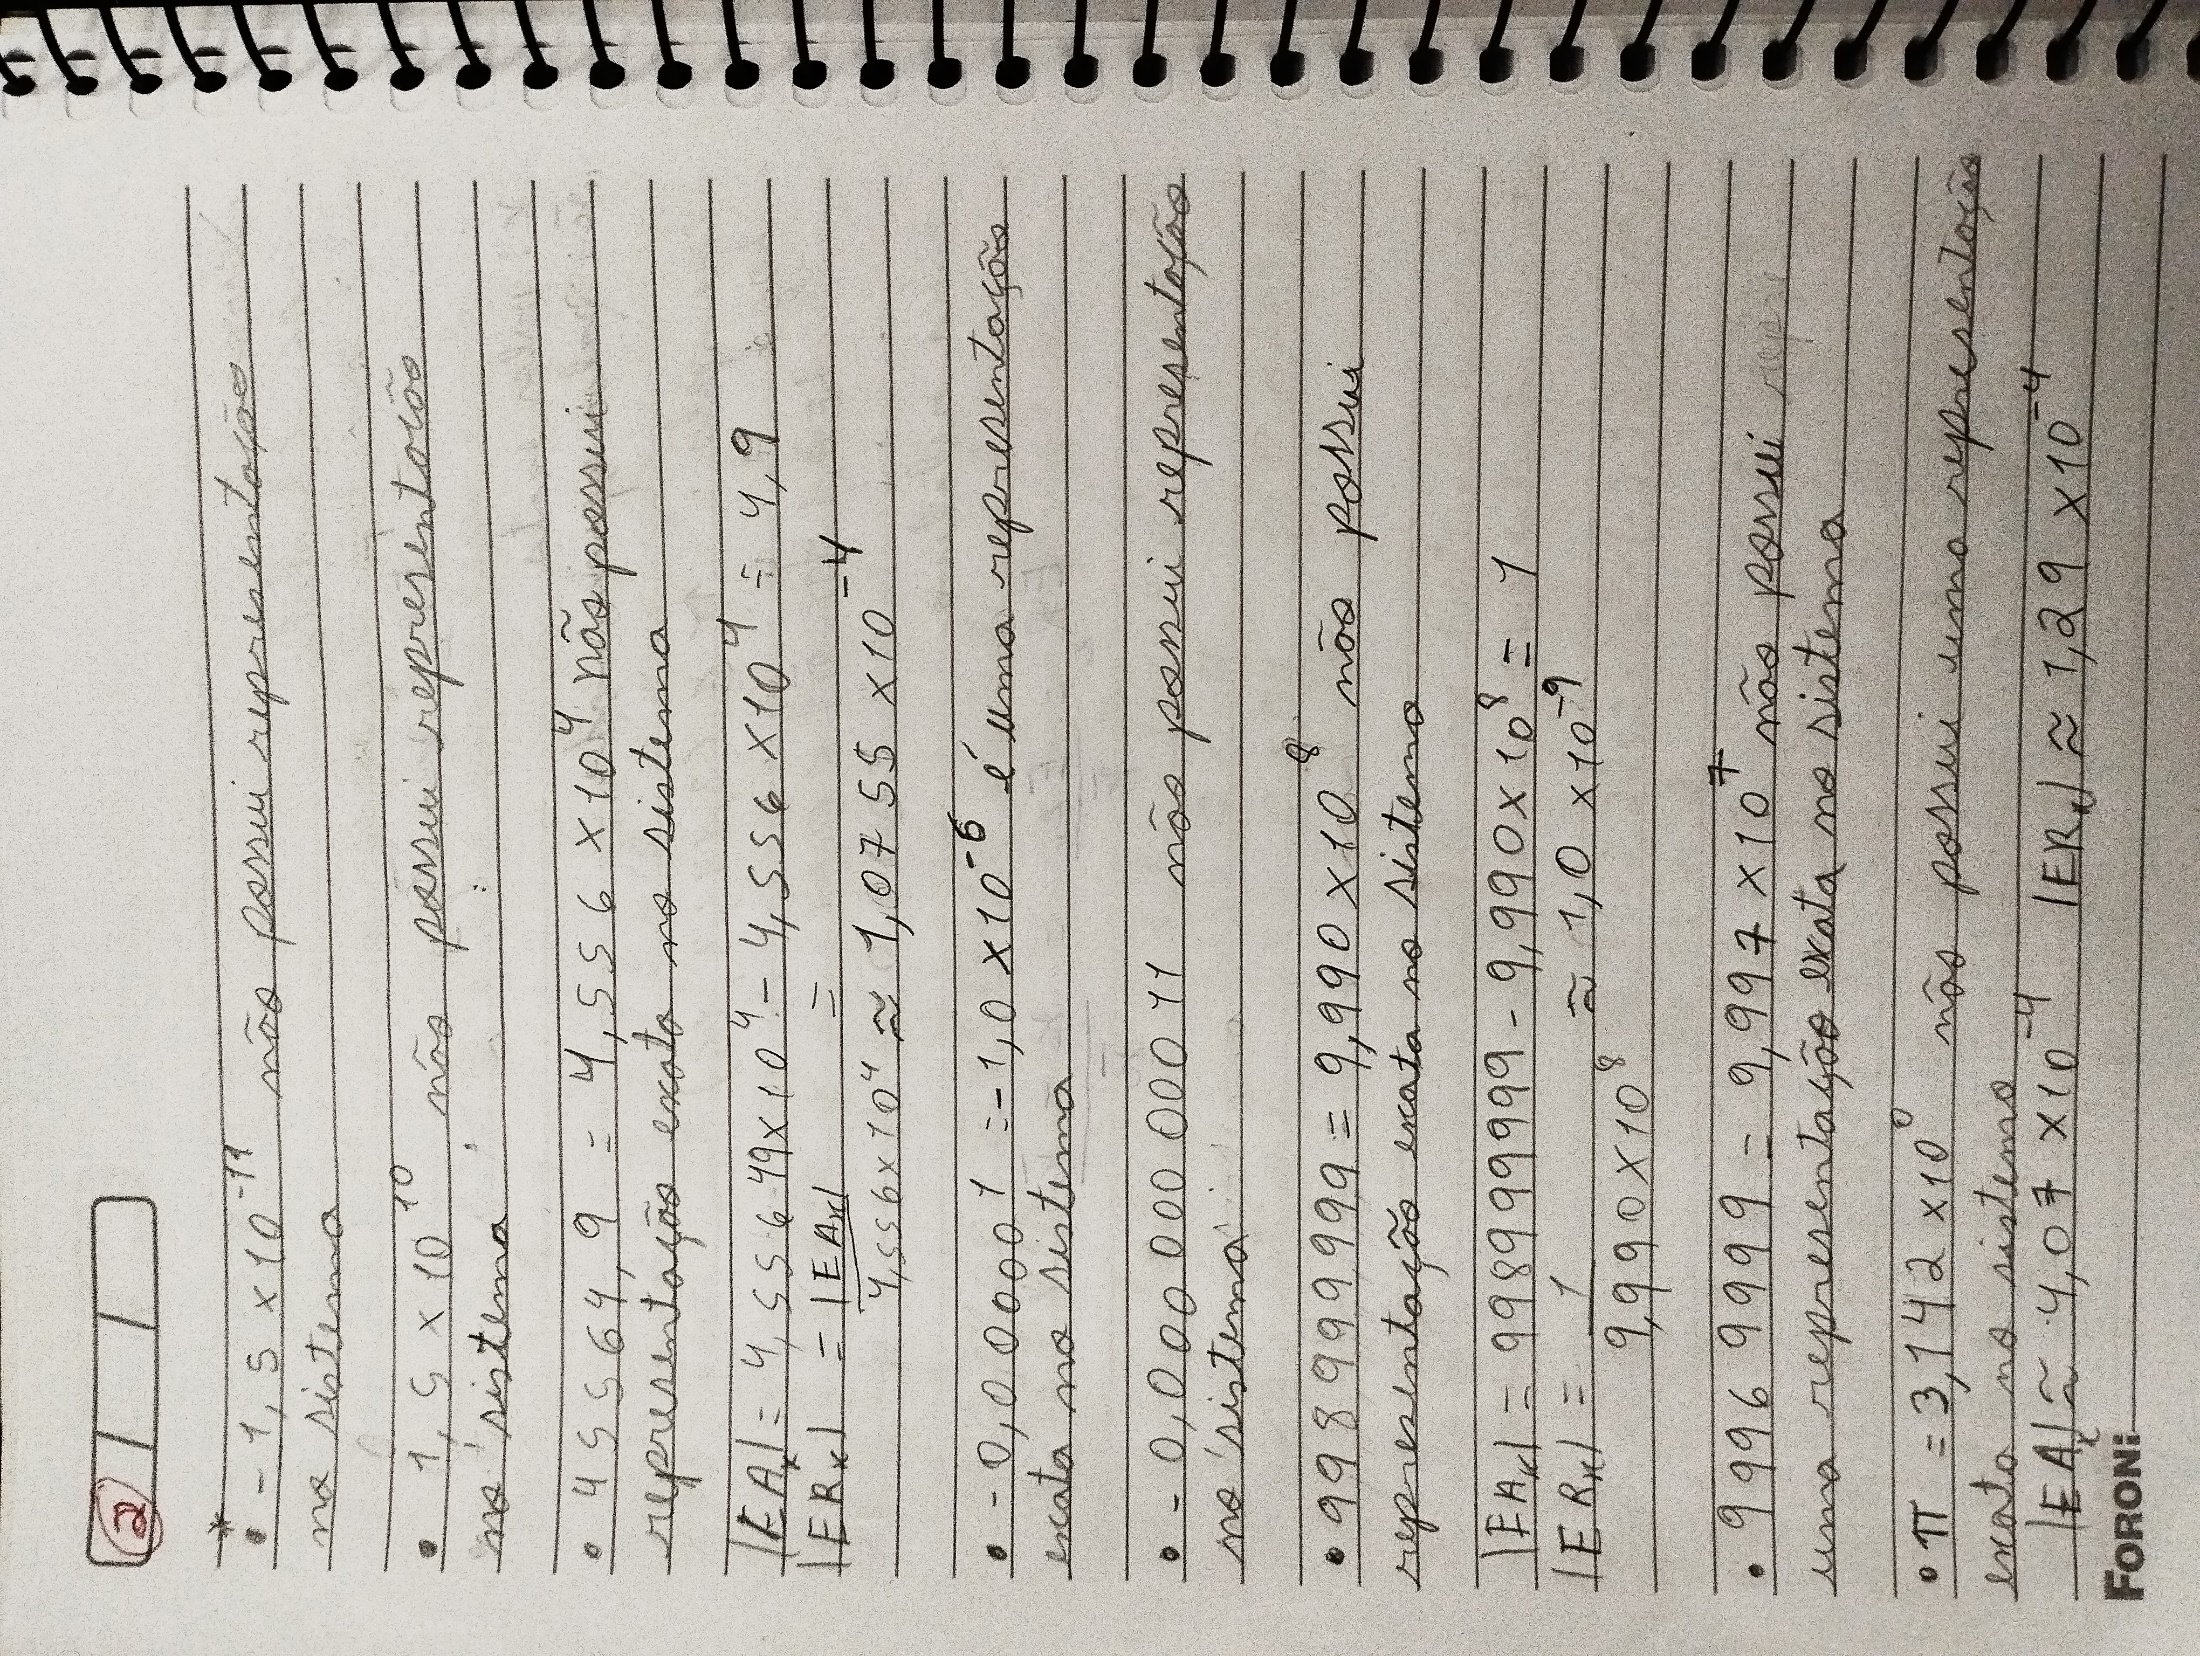 2
*
• -1,5 x 10⁻¹¹ não possui representação
no sistema
• 1,5 x 10¹⁰ não possui representação
no sistema
• 45564,9 = 4,556 x 10⁴ não possui
representação exata no sistema
|EAx| = 4,55649x10⁴ - 4,556 x10⁴ = 4,9
|ERx| = |EAx| / 4,556x10⁴ = ≈ 1,0755 x10⁻⁴
• -0,000001 = -1,0 x10⁻⁶ é uma representação
exata no sistema
• -0,00000000011 não possui representação
no sistema
• 998999999 = 9,990 x10⁸ não possui
representação exata no sistema
|EAx| = 998999999 - 9,990x10⁸ = 1
|ERx| = 1 / 9,990x10⁸ ≈ 1,0 x10⁻⁹
• 99969999 = 9,997 x10⁷ não possui
uma representação exata no sistema
• π = 3,142 x10⁰ não possui uma representação
exata no sistema
|EAx| ≈ 4,07 x10⁻⁴ |ERx| ≈ 1,29 x10⁻⁴
FORONI